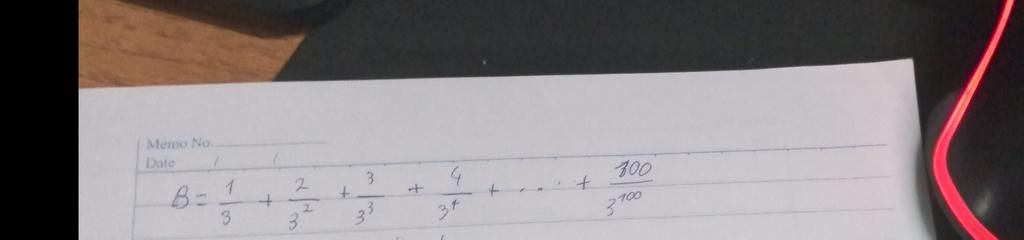 Memo No.
Date / /
B = 1/3 + 2/3² + 3/3³ + 4/3⁴ + .... + 100/3¹⁰⁰